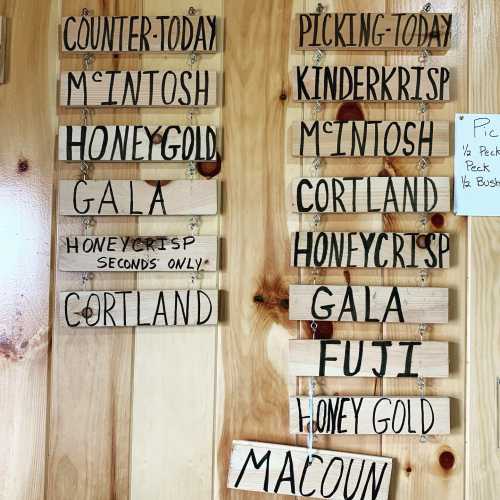 COUNTER-TODAY
McINTOSH
HONEYGOLD
GALA
HONEYCRISP
SECONDS ONLY
CORTLAND
PICKING-TODAY
KINDERKRISP
McINTOSH
CORTLAND
HONEYCRISP
GALA
FUJI
HONEY GOLD
MACOUN
Pic
1/2 Peck
Peck
1/2 Bush